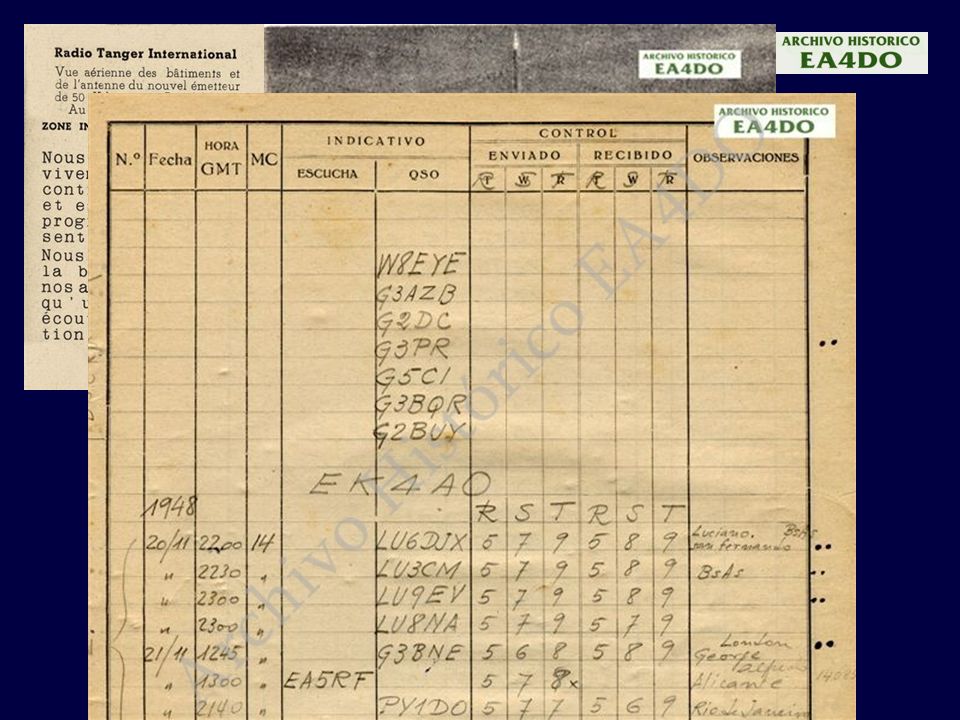 Radio Tanger International
Vue aérienne des bâtiments et
de l'antenne du nouvel émetteur
de 50
Au
ZONE IN
Nous
viven
cont
et e
prog
sent
Nous
la b
nos a
qu'u
écou
tion
ARCHIVO HISTORICO
EA4DO
ARCHIVO HISTORICO
EA4DO
ARCHIVO HISTORICO
EA4DO
Archivo Histórico EA4DO
N.º Fecha HORA GMT MC INDICATIVO CONTROL OBSERVACIONES
ESCUCHA QSO ENVIADO RECIBIDO
R S T R S T
W8EYE
G3AZB
G2DC
G3PR
G5CI
G3BQR
G2BUY
EK4AO
1948 R S T R S T
20/11 2200 14 LU6DJX 5 7 9 5 8 9 Luciano. BsAs
san fernando
" 2230 " LU3CM 5 7 9 5 8 9 BsAs
" 2300 " LU9EV 5 7 9 5 8 9
" 2300 " LU8NA 5 7 9 5 7 9
21/11 1245 " G3BNE 5 6 8 5 8 9 London
George
" 1300 " EA5RF 5 7 8x Alicante
" 2140 " PY1DO 5 7 7 5 6 9 Rio de Janeiro